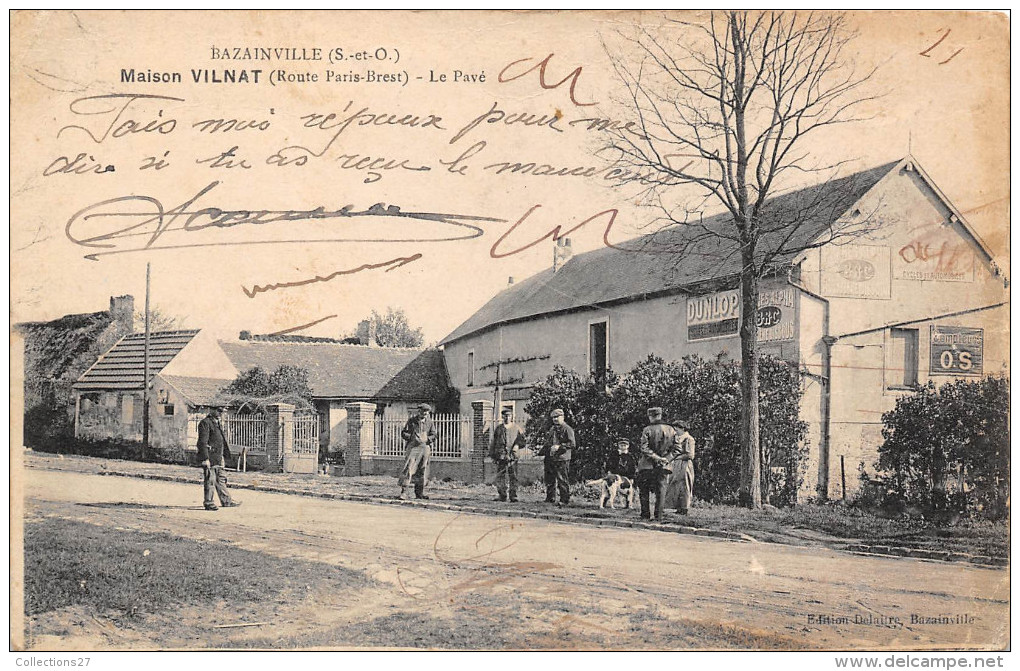 BAZAINVILLE (S.-et-O.)
Maison VILNAT (Route Paris-Brest) - Le Pavé
Fais moi réponse pour me
dire si tu as reçu le mandat
DUNLOP
B.R.C
B.R.C
CYCLES et AUTOMOBILES
OS
Edition Delaitre, Bazainville
Collections27
delcampe.net